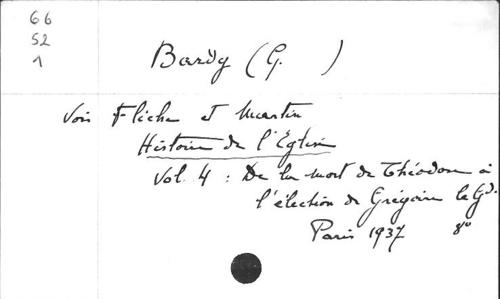 66
52
1
Bardy (G. )
Voir Fliche et Martin
Histoire de l'Eglise
Vol. 4 : De la mort de Théodose à
l'élection de Grégoire le Gd.
Paris 1937 8º